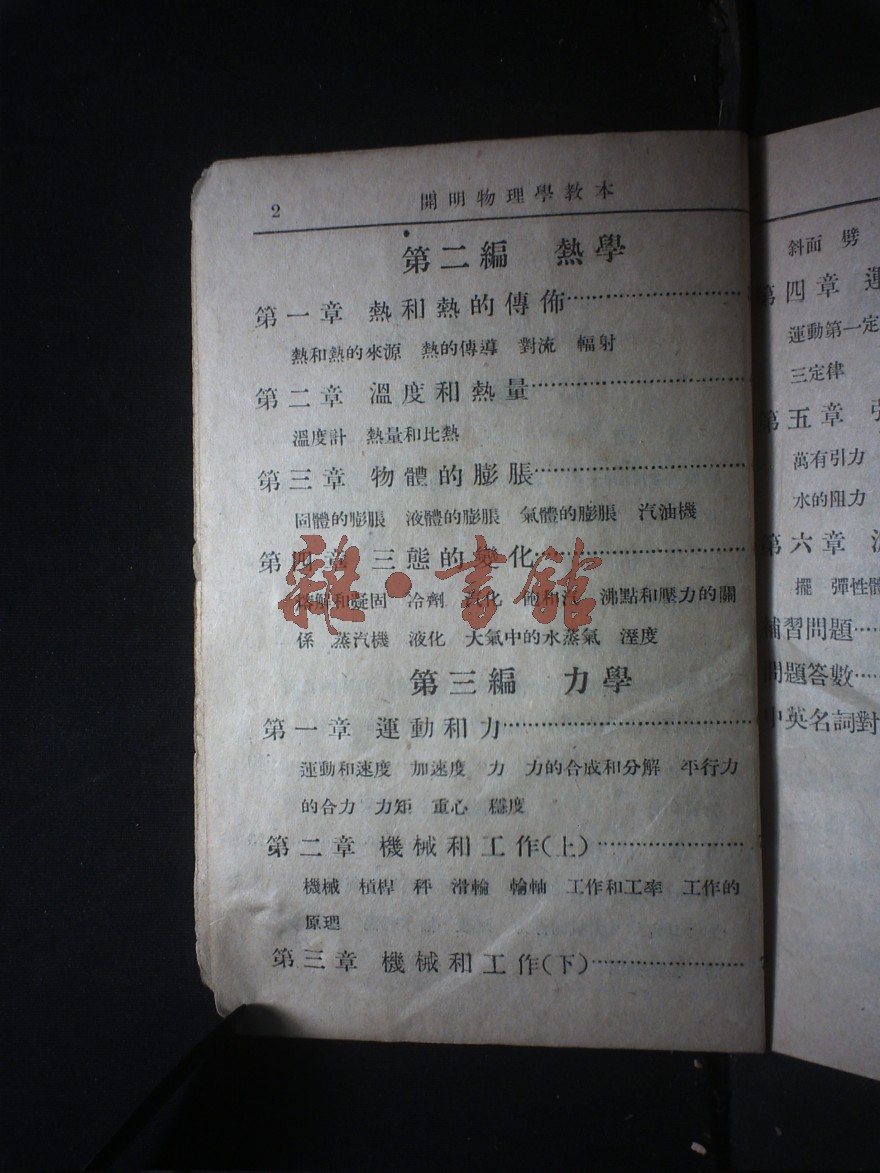 2
開明物理學教本
第二編 熱學
第一章 熱和熱的傳佈
熱和熱的來源 熱的傳導 對流 輻射
第二章 溫度和熱量
溫度計 熱量和比熱
第三章 物體的膨脹
固體的膨脹 液體的膨脹 氣體的膨脹 汽油機
第四章 三態的變化
熔解和凝固 冷劑 汽化 飽和汽 沸點和壓力的關
係 蒸汽機 液化 大氣中的水蒸氣 溼度
第三編 力學
第一章 運動和力
運動和速度 加速度 力 力的合成和分解 平行力
的合力 力矩 重心 穩度
第二章 機械和工作(上)
機械 槓桿 秤 滑輪 輪軸 工作和工率 工作的
原理
第三章 機械和工作(下)
斜面 劈
第四章
運動第一定
三定律
第五章
萬有引力
水的阻力
第六章
擺 彈性體
補習問題
問題答數
中英名詞對
雜·書館